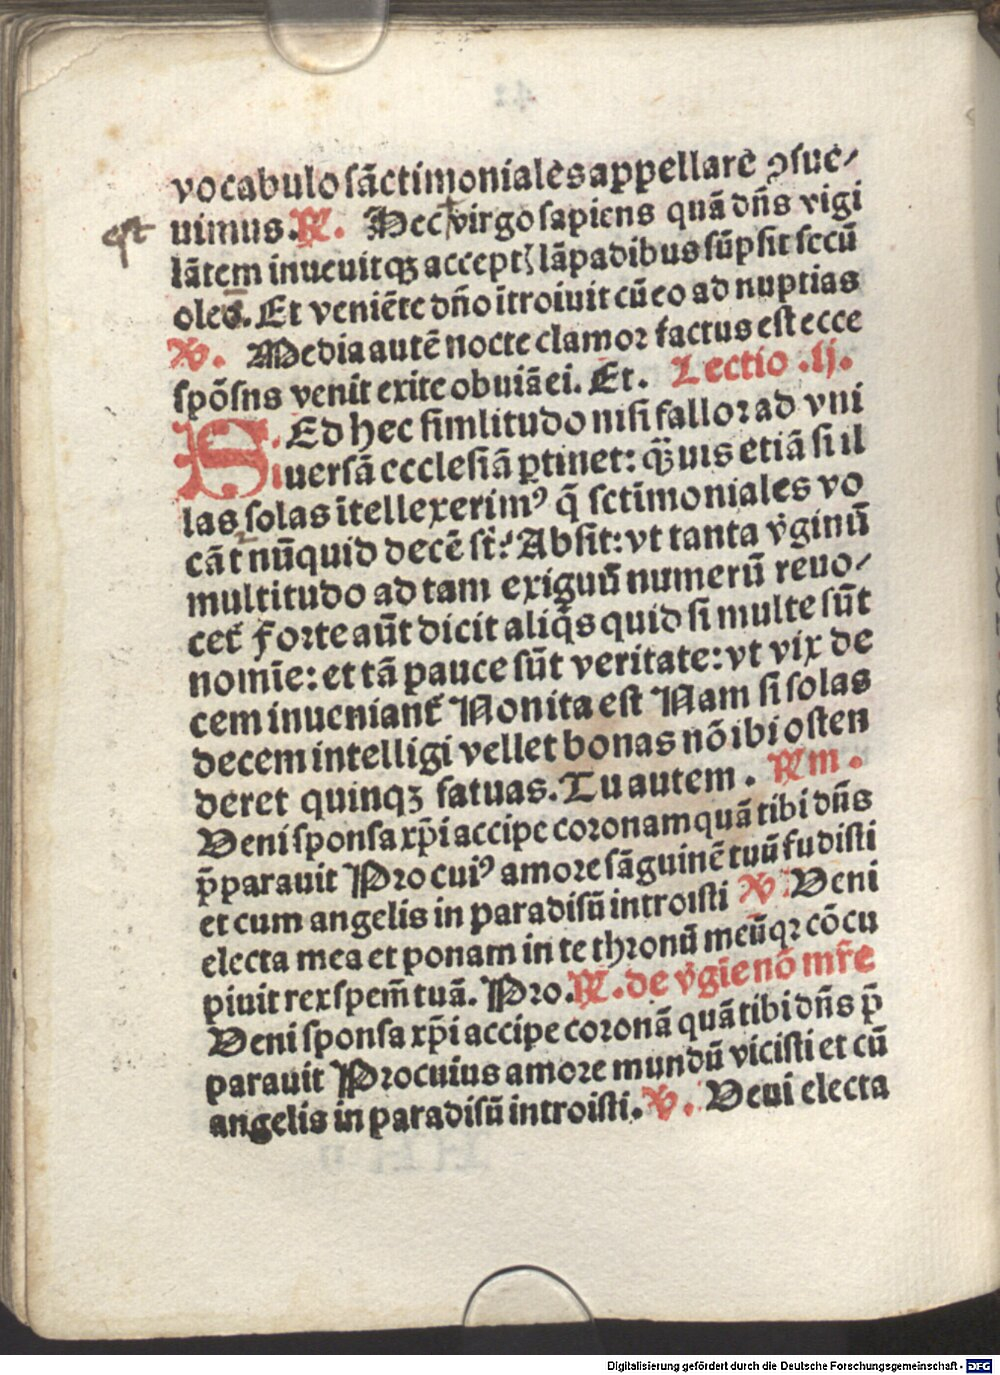 vocabulo sãctimoniales appellarē ꝯsue⸗
uimus. ℟. Hec virgo sapiens quã dñs vigi
est
lãtem inueuitqꝫ accept lãpadibus sũpsit secũ
oleū. Et veniēte dño ĩtroiuit cũ eo ad nuptias
℣. Media autē nocte clamoꝛ factus est ecce
spõsus venit exite obuiã ei. Et. Lectio .ij.
SEd hec simlitudo nisi falloꝛ ad vni
uersã ecclesiã ꝑtinet: qꝫuis etiã si il
las solas ĩtellexerimꝰ q̃ sctĩmoniales vo
cãt nũquid decē st̃? Absit: vt tanta v̓ginũ
multitudo ad tam exiguũ numerũ reuo⸗
cet̃ Forte aũt dicit aliq̃s quid si multe sũt
nomĩe: et tã pauce sũt veritate: vt vix de
cem inueniant̃ Non ita est Nam si solas
decem intelligi vellet bonas nõ ibi osten
deret quinqꝫ fatuas. Tu autem . ℟m .
Veni sponsa xp̃i accipe coꝛonam quã tibi dñs
p̃parauit Pꝛo cuiꝰ amore sãguinē tuũ fudisti
et cum angelis in paradisũ introisti ℣ Veni
electa mea et ponam in te thꝛonũ meũ qꝛ cõcu
piuit rex spem̃ tuã. Pꝛo. ℟. de v̓gĩe nõ mr̃e
Veni sponsa xp̃i accipe coꝛonã quã tibi dñs p̃
parauit Pꝛo cuius amoꝛe mundũ vicisti et cũ
angelis in paradisũ introisti. ℣. Veui electa
Digitalisierung gefördert durch die Deutsche Forschungsgemeinschaft - DFG